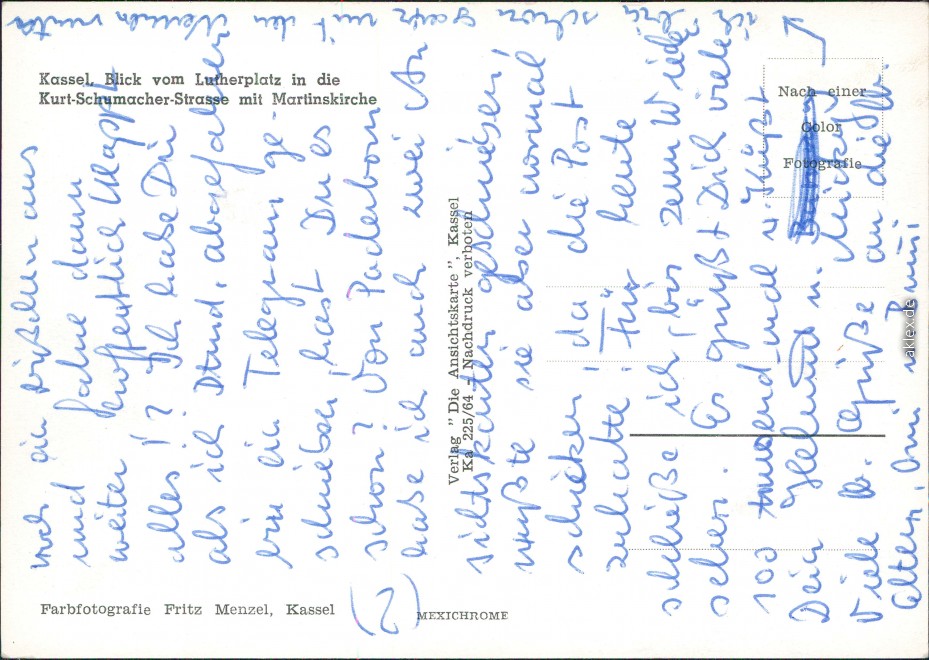 Kassel, Blick vom Lutherplatz in die
Kurt-Schumacher-Strasse mit Martinskirche
Nach einer
Color
Fotografie
Verlag "Die Ansichtskarte", Kassel
Ka 225/64 - Nachdruck verboten
Farbfotografie Fritz Menzel, Kassel
MEXICHROME
(2)
noch ein bißchen aus
und fahre dann
weiter! Hoffentlich klappt
alles! ? Ich habe Dir
als ich Dtmd. abgefahren
bin ein Telegramm ge-
schrieben, hast Du es
schon? Von Paderborn
habe ich auch zwei An
sichtskarten geschrieben!
mußte sie aber normal
schicken, da die Post
zuhatte! Für heute
schließe ich, bis zum Wieder
sehen. Es grüßt Dich viele
100 tausend mal u. küßt
Dein
Viele Grüße an die
Eltern, Omi u. Pummi
ich bin schon ganz mit den Nerven runter
raklex.de